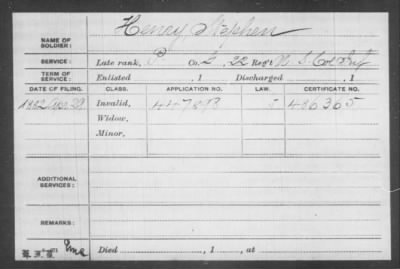 NAME OF SOLDIER: Henry, Stephen
SERVICE: Late rank, P Co. G, 22 Reg't U. S. Col. Inf
TERM OF SERVICE: Enlisted , 1 Discharged , 1
DATE OF FILING. CLASS. APPLICATION NO. LAW. CERTIFICATE NO.
1882 Apr 29 Invalid, 447898 J 486365
Widow,
Minor,
ADDITIONAL SERVICES:
REMARKS:
Died , 1 , at